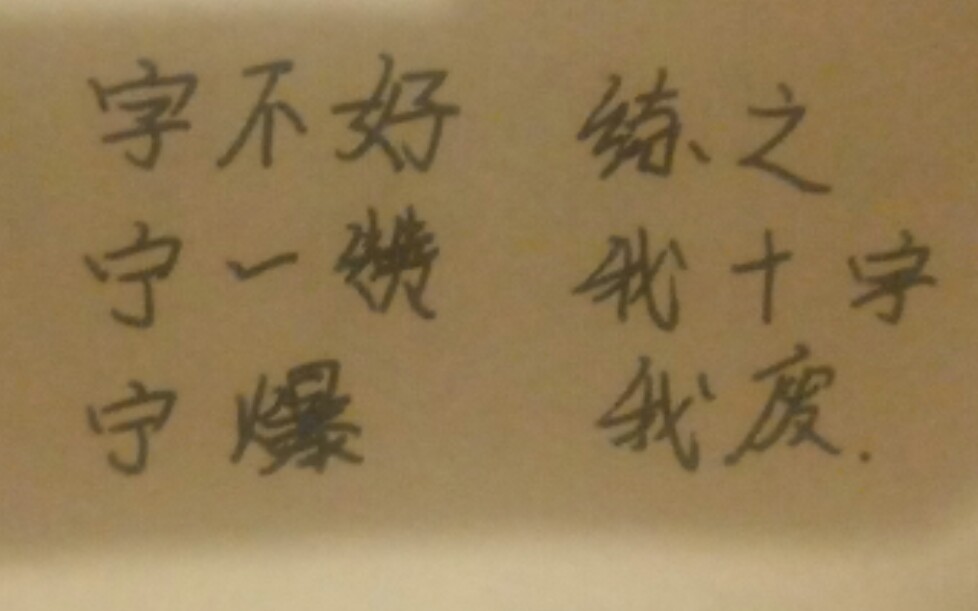 字不好 练之
宁一赞 我十字
宁爆 我废.